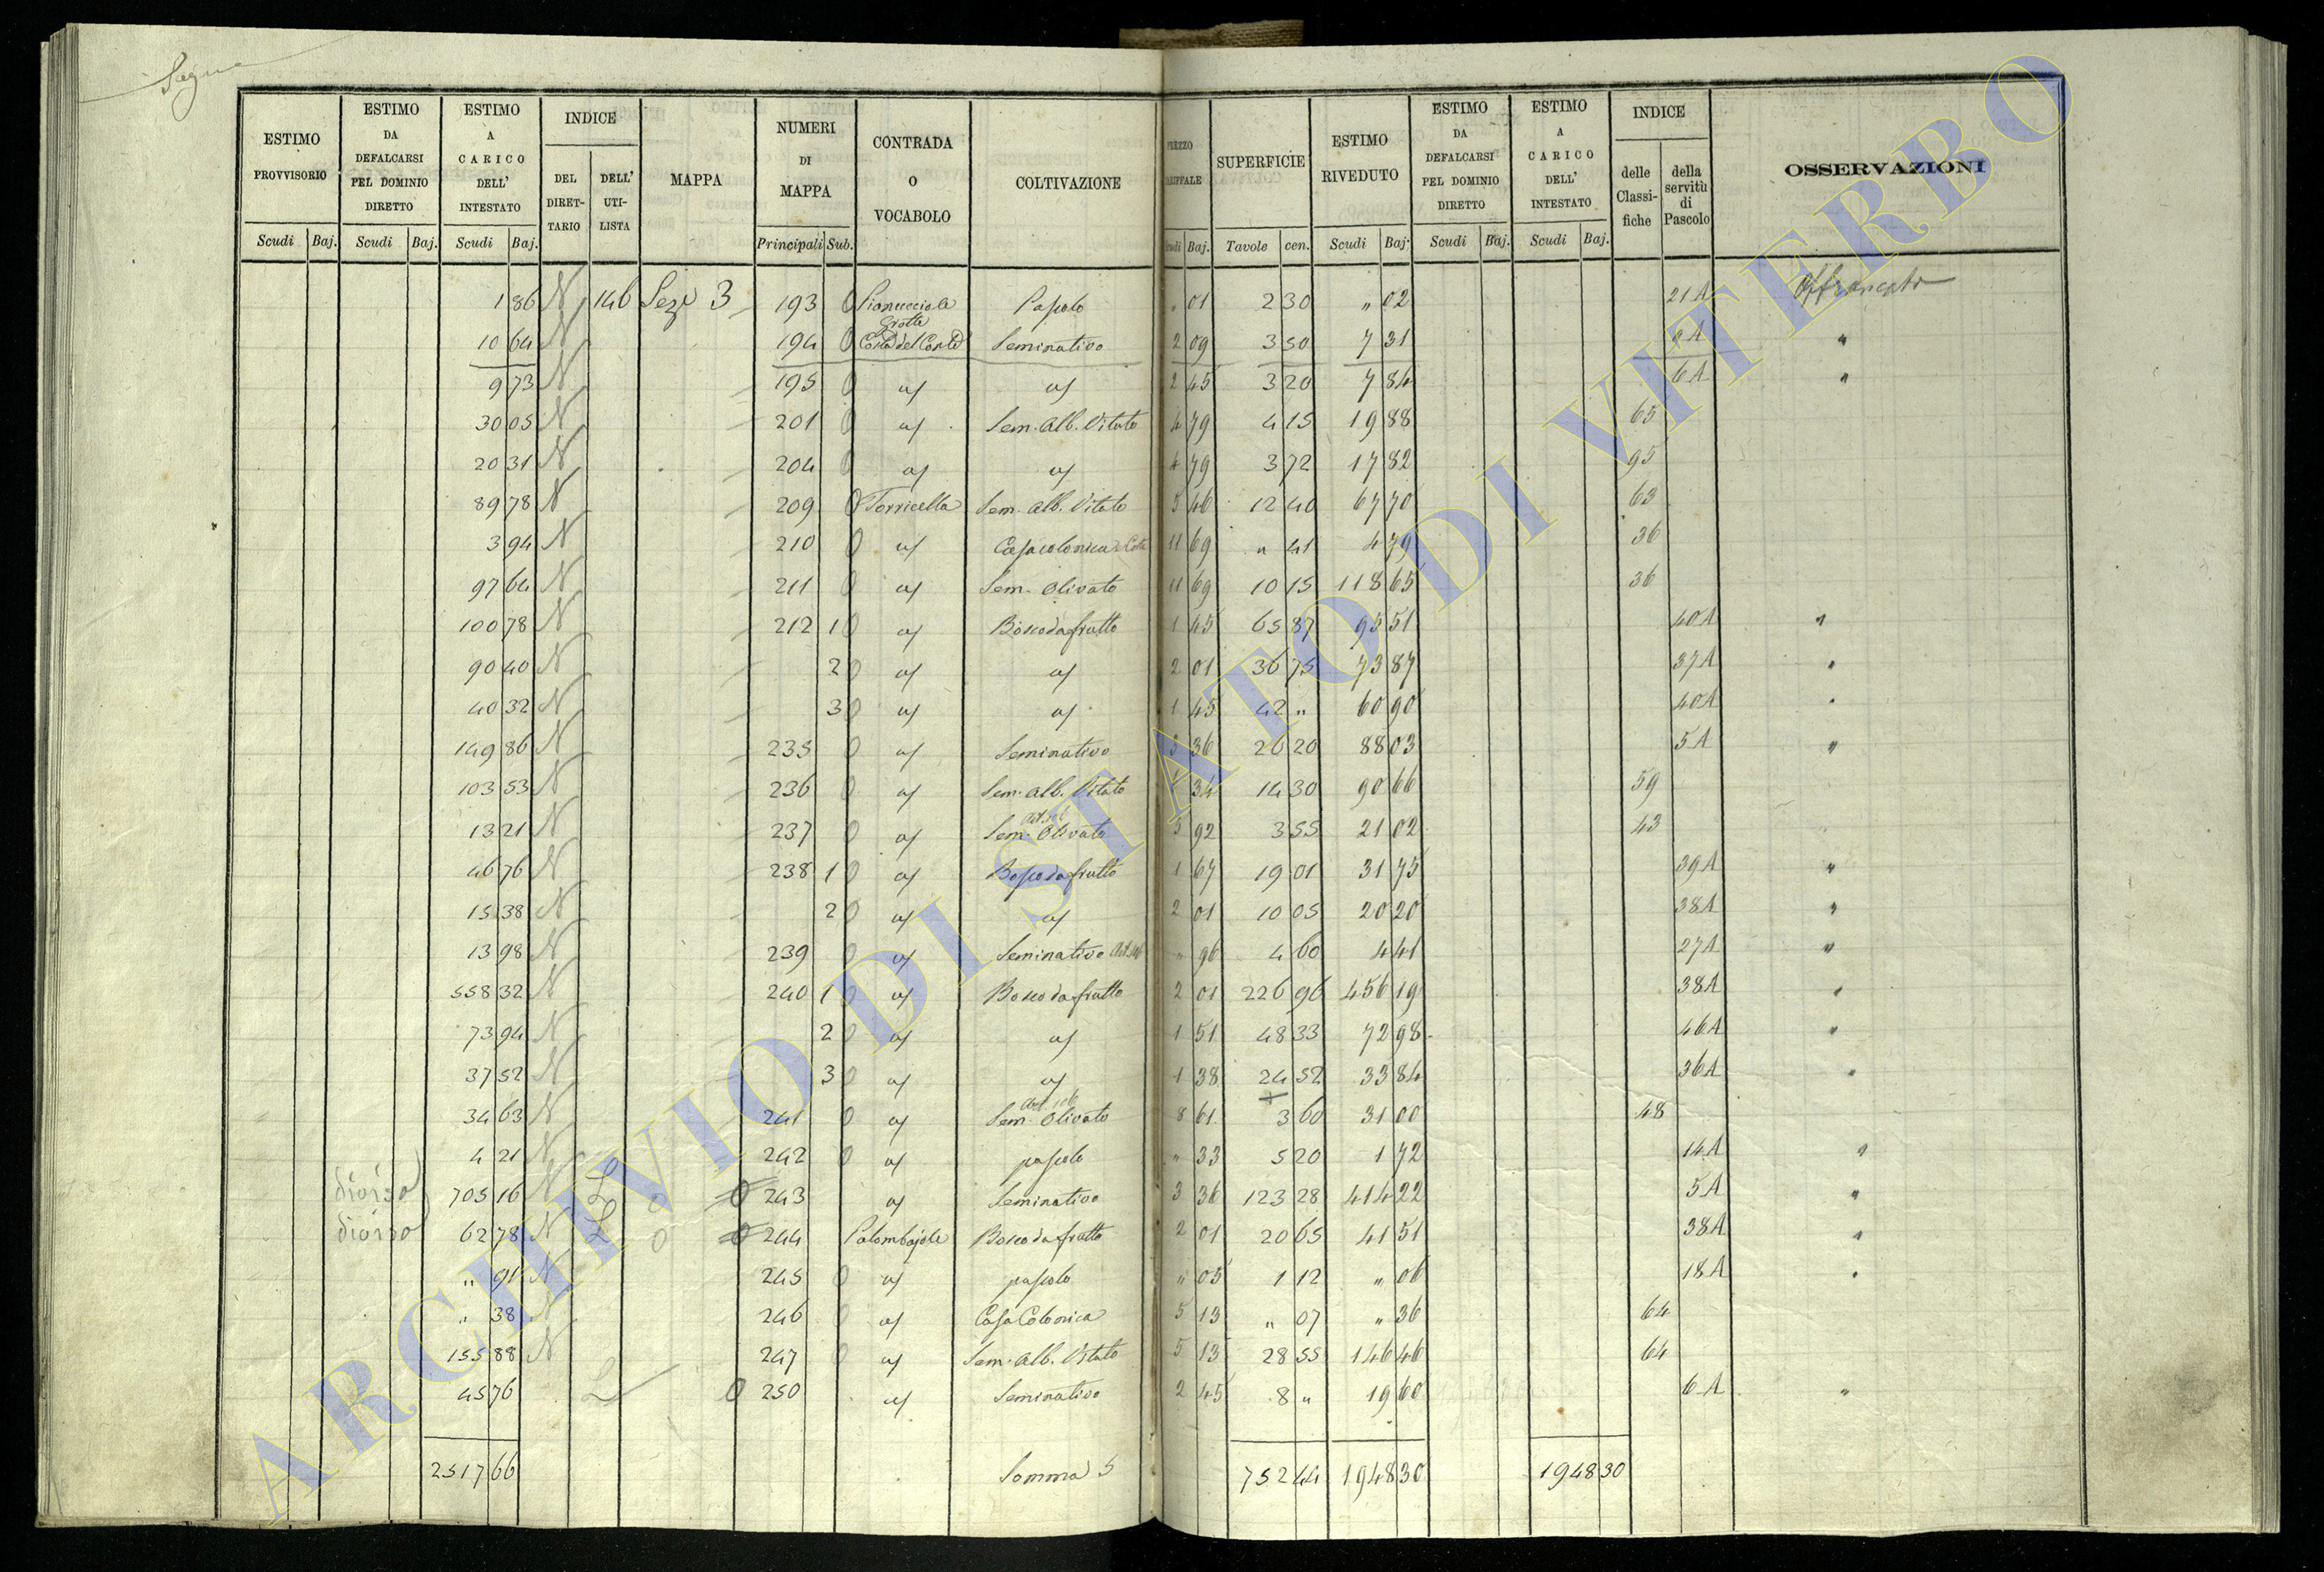 Segue
ESTIMO PROVVISORIO | ESTIMO DA DEFALCARSI PEL DOMINIO DIRETTO | ESTIMO A CARICO DELL' INTESTATO | INDICE | MAPPA | NUMERI DI MAPPA | CONTRADA O VOCABOLO | COLTIVAZIONE | SUPERFICIE | ESTIMO RIVEDUTO | ESTIMO DA DEFALCARSI PEL DOMINIO DIRETTO | ESTIMO A CARICO DELL' INTESTATO | INDICE | OSSERVAZIONI
DEL DIRETTARIO | DELL' UTILISTA | delle Classifiche | della servitù di Pascolo
Scudi | Baj. | Scudi | Baj. | Scudi | Baj. | Principali | Sub. | Baj. | Tavole | cen. | Scudi | Baj. | Scudi | Baj. | Scudi | Baj.
1 86 N 146 Sez 3 193 0 Pianucciole Pascolo " 01 2 30 " 02 21 A Affrancato
Grotte
10 64 N 194 0 Costa del Conte Seminativo 2 09 3 50 7 31 8 A "
9 73 N 195 0 a/ a/ 2 45 3 20 7 84 6 A "
30 05 N 201 0 a/ Sem. Alb. Vitato 4 79 4 15 19 88 65
20 31 N 204 0 a/ a/ 4 79 3 72 17 82 95
89 78 N 209 0 Torricella Sem. Alb. Vitato 5 46 12 40 67 70 63
3 94 N 210 0 a/ Casa colonica 11 69 " 41 4 79 36
97 64 N 211 0 a/ Sem. Olivato 11 69 10 15 118 65 36
100 78 N 212 1 0 a/ Bosco da frutto 1 45 65 87 95 51 40 A "
90 40 N 2 0 a/ a/ 2 01 36 75 73 87 37 A "
40 32 N 3 0 a/ a/ 1 45 42 " 60 90 40 A "
149 86 N 235 0 a/ Seminativo 3 36 26 20 88 03 5 A "
103 53 N 236 0 a/ Sem. Alb. Vitato 34 14 30 90 66 59
13 21 N 237 0 a/ Sem. Olivato 5 92 3 55 21 02 43
46 76 N 238 1 0 a/ Bosco da frutto 1 67 19 01 31 75 39 A "
15 38 N 2 0 a/ a/ 2 01 10 05 20 20 38 A "
13 98 N 239 0 a/ Seminativo " 96 4 60 4 41 27 A "
558 32 N 240 1 0 a/ Bosco da frutto 2 01 226 96 456 19 38 A "
73 94 N 2 0 a/ a/ 1 51 48 33 72 98 46 A "
37 52 N 3 0 a/ a/ 1 38 24 52 33 84 36 A "
34 63 N 241 0 a/ Sem. Olivato 8 61 3 60 31 00 48
4 21 N 242 0 a/ pascolo " 33 5 20 1 72 14 A "
diviso 705 16 N L 0 0 243 a/ Seminativo 3 36 123 28 414 22 5 A "
diviso 62 78 N L 0 0 244 Palombajole Bosco da frutto 2 01 20 65 41 51 38 A "
" 91 N 245 0 a/ pascolo " 05 1 12 " 06 18 A "
" 38 N 246 0 a/ Casa Colonica 5 13 " 07 " 36 64
155 88 N 247 0 a/ Sem. Alb. Vitato 5 13 28 55 146 46 64
45 76 L 0 250 a/ Seminativo 2 45 8 " 19 60 6 A "
2517 66 Somma S 752 44 1948 30 1948 30
ARCHIVIO DI STATO DI VITERBO